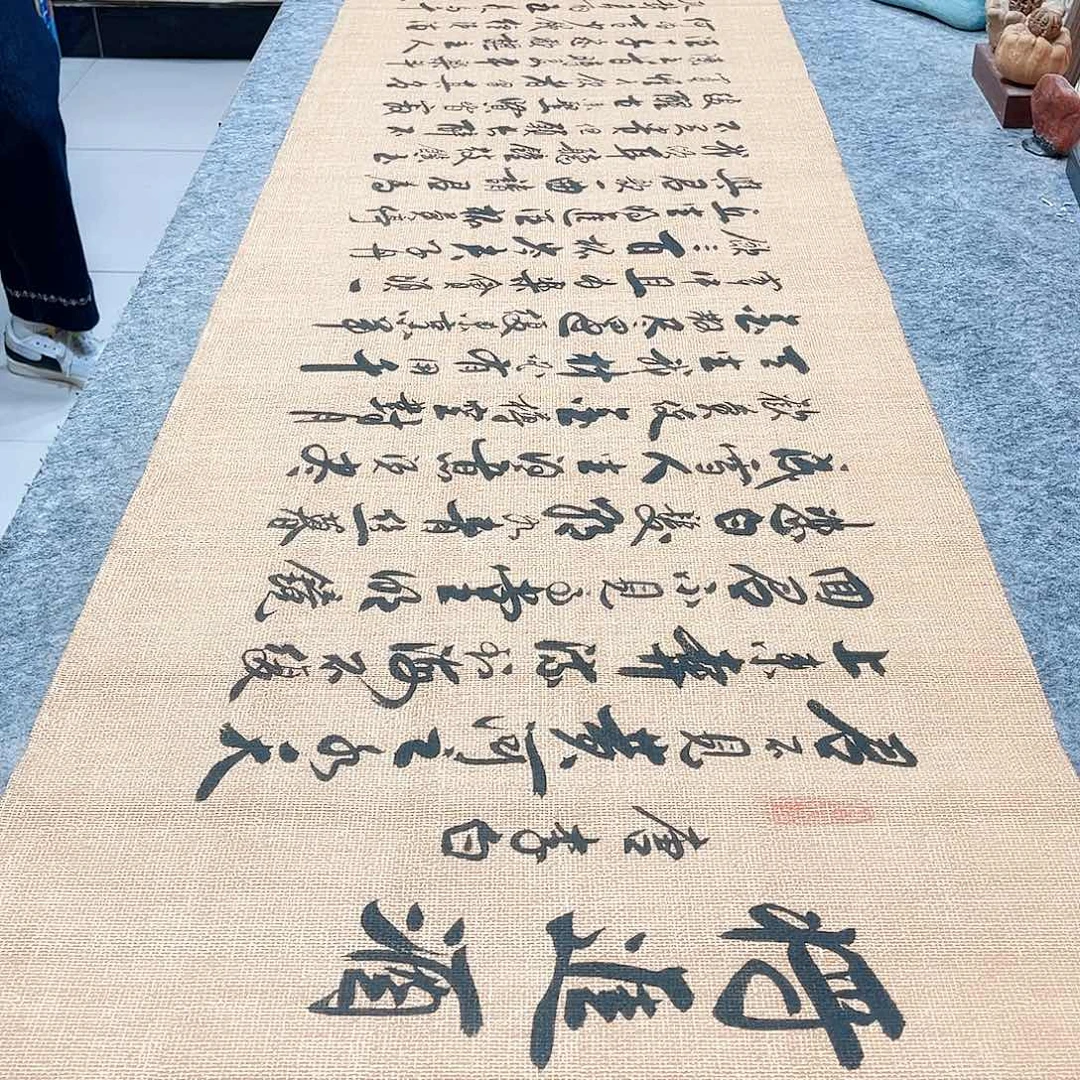 將進酒
唐李白
君不見黃河之水天
上來奔流到海不復
回君不見高堂明鏡
悲白髮朝如青絲暮
成雪人生得意須盡
歡莫使金樽空對月
天生我材必有用千
金散盡還復來烹羊
宰牛且為樂會須一
飲三百杯岑夫子丹
丘生將進酒杯莫停
與君歌一曲請君為
我傾耳聽鐘鼓饌玉
不足貴但願長醉不
復醒古來聖賢皆寂
寞惟有飲者留其名
陳王昔時宴平樂斗
酒十千恣歡謔主人
何為言少錢徑須沽